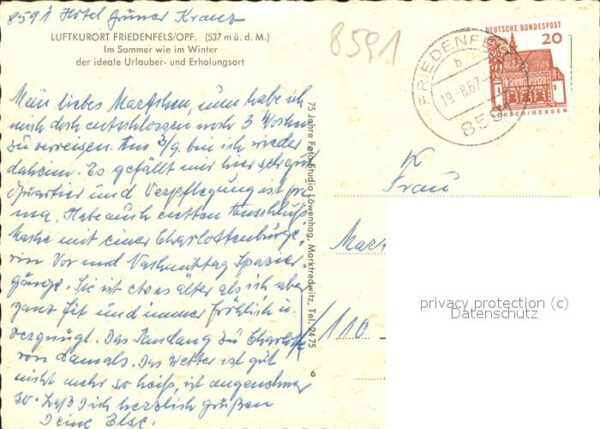 8591 Hotel Grüner Kranz
LUFTKURORT FRIEDENFELS/OPF. (537 m ü. d. M.)
Im Sommer wie im Winter
der ideale Urlauber- und Erholungsort
Mein liebes Martchen, nun habe ich
mich doch entschlossen noch 3 Wochen
zu verreisen. Am 3/9. bin ich wieder
daheim. Es gefällt mir hier sehr gut
Quartier und Verpflegung ist pri
ma. Habe auch netten Anschluß
Mache mit einer Charlottenburge-
rin Vor und Nachmittag Spazier-
gänge. Sie ist etwas älter als ich aber
ganz fit und immer fröhlich u.
vergnügt. Das Pendant zu Charlotte
von damals. Das Wetter ist gut
nicht mehr so heiß, ist angenehmer
so. Laß Dich herzlich grüßen
Deine Else.
75 Jahre Foto-Studio Löwenhag, Marktredwitz, Tel. 2475
6
8591
FRIEDENFELS
b
19.-8.67
859
DEUTSCHE BUNDESPOST
20
LORSCH/HESSEN
Frau
Mart
1/110
privacy protection (c)
Datenschutz